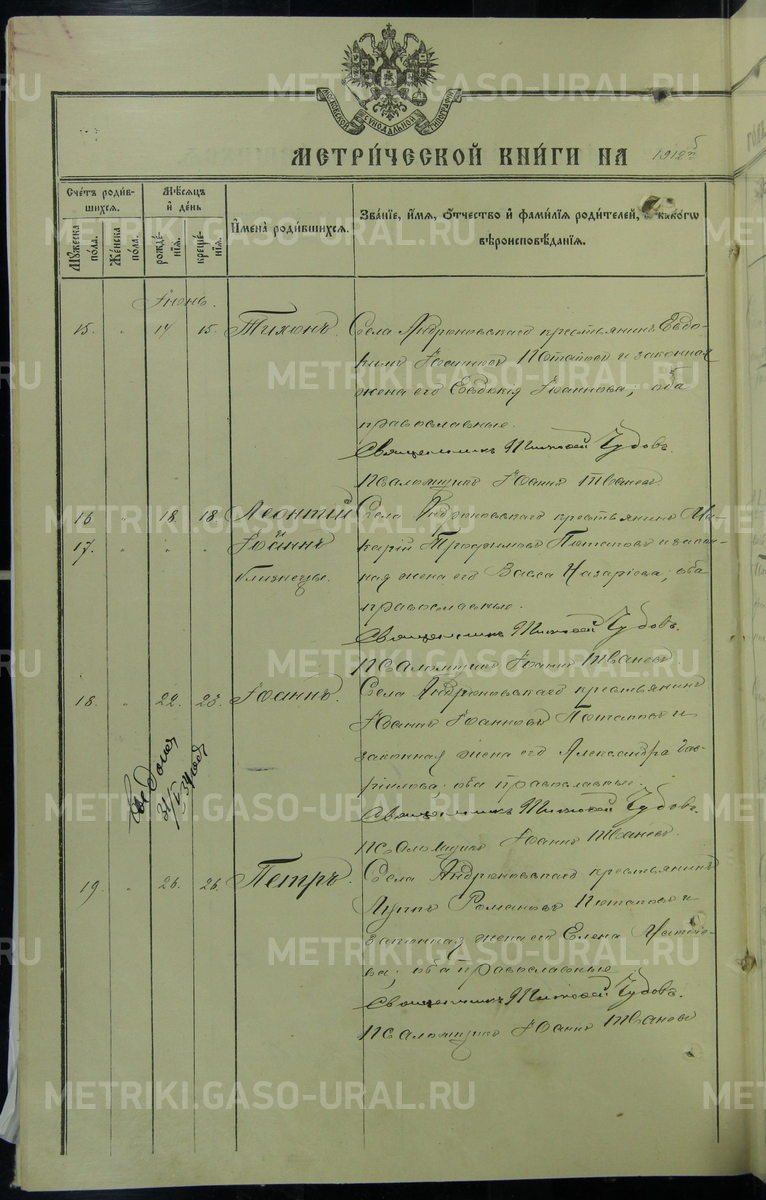 МОСКОВСКОЙ СѴНОДАЛЬНОЙ ТИПОГРАФІИ
МЕТРИ́ЧЕСКОЙ КНИ́ГИ НА 1912
Сче́тъ роди́в-
шихся.
Му́жеска по́ла.
Же́нска по́ла.
Мѣ́сяцъ
и҆ де́нь
рожде́-
нїя.
креще́-
нїя.
И҆мена̀ роди́вшихся.
Зва́нїе, и҆́мя, ѻ҆́тчество и҆ фами́лїя роди́телей, и҆ како́гѡ
вѣроисповѣ́данїя.
Іюнь.
15. " 14 15. Тихонъ. Села Андроновскаго крестьянинъ Евдо-
кимъ Потаповъ и законная
жена его Евдокія Іоаннова; оба
православные.
Священникъ Чудовъ.
Псаломщикъ Іоаннъ Ивановъ.
16 " 18. 18. Леонтій Села Андроновскаго крестьянинъ Ма-
17. " " " Іоаннъ карій Трофимовъ Потаповъ и закон-
близнецы. ная жена его Васса Назаріева; оба
православные.
Священникъ Чудовъ.
Псаломщикъ Іоаннъ Ивановъ.
18. " 22. 23. Іоаннъ. Села Андроновскаго крестьянинъ
Іоаннъ Іоанновъ Потаповъ и
законная жена его Александра Гав-
ріилова; оба православные.
Священникъ Чудовъ.
Псаломщикъ Іоаннъ Ивановъ.
19. " 26. 26. Петръ. Села Андроновскаго крестьянинъ
Луппъ Романовъ Потаповъ и
законная жена его Елена
оба православные
Священникъ Чудовъ.
Псаломщикъ Іоаннъ Ивановъ
METRIKI.GASO-URAL.RU